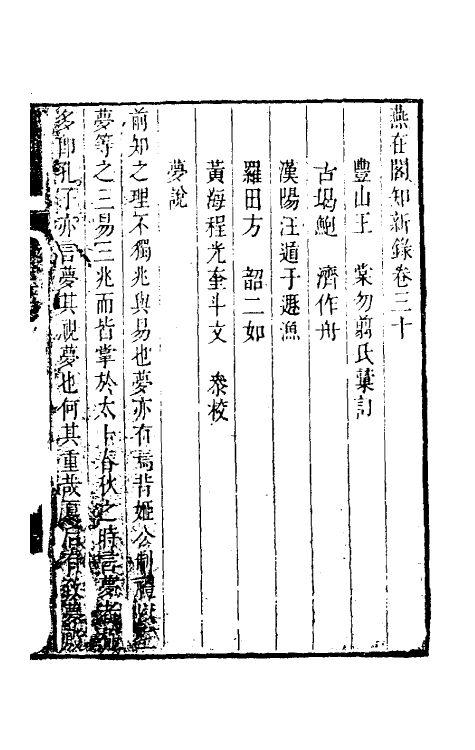 燕在閣知新錄卷三十
豐山王　棠勿翦氏彙訂
古堨鮑　濟作舟
漢陽汪遁于遯漁
羅田方　韶二如
黃海程光奎斗文　叅校
夢說
前知之理不獨兆與易也夢亦有焉昔姬公制禮以
夢等之三易三兆而皆掌於太卜春秋之時言夢
多即孔子亦言夢其視夢也何其重哉厥后有